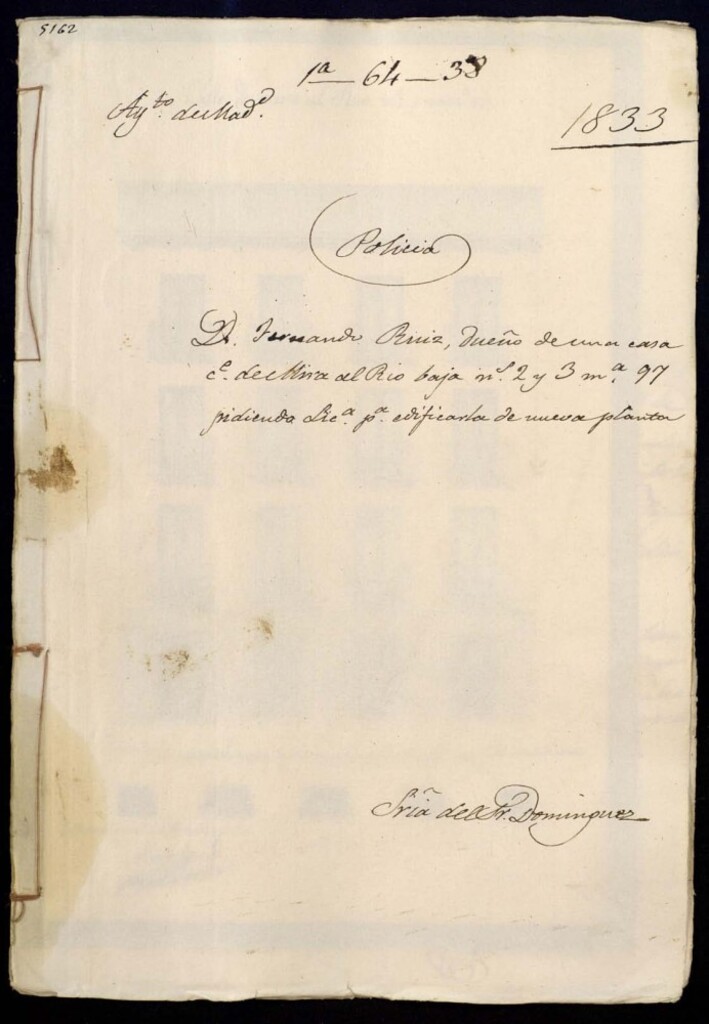 5162
1ª — 64 — 38
Ayto. de Madd.
1833
Policia
Dn. Fernando Ruiz, dueño de una casa
ce. de Mira el Rio baja ns. 2 y 3 mª. 97
pidiendo Lica. pª. edificarla de nueva planta
Sria del Sr. Dominguez